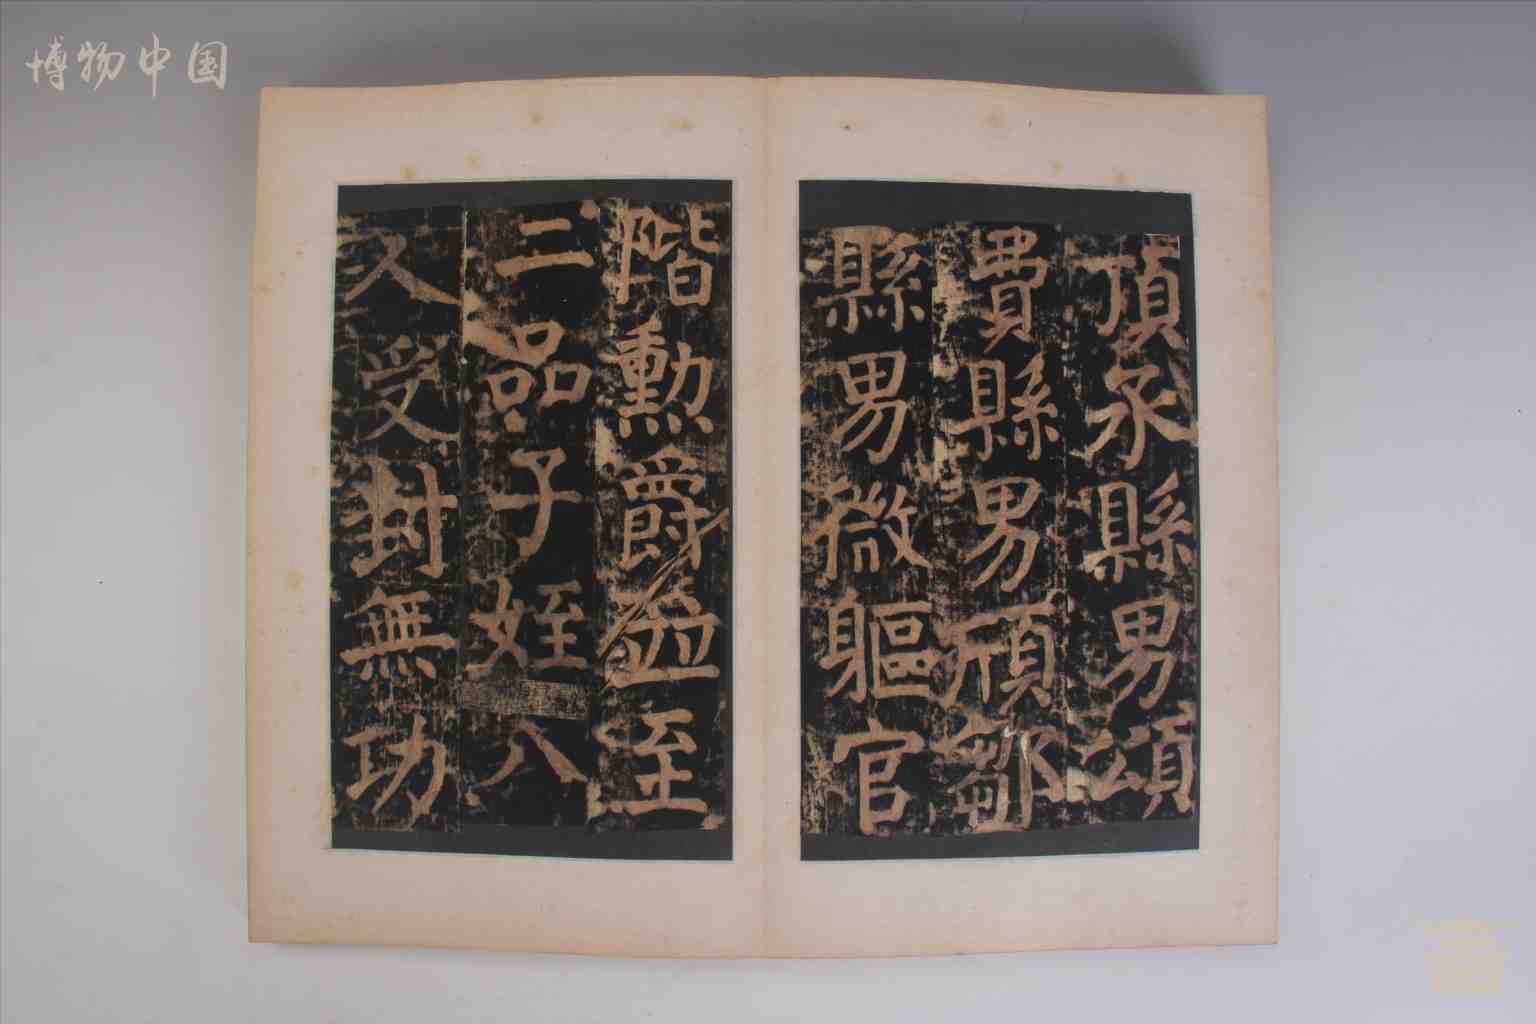 博物中国
頂氶縣男頌
費縣男頎鄒
縣男微軀官
階勳爵並至
二品子姪八
人受封無功